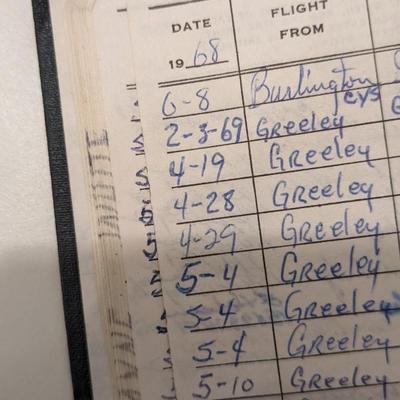 DATE FLIGHT FROM
1968
6-8 Burlington
CYS
2-3-69 Greeley
4-19 Greeley
4-28 Greeley
4-29 Greeley
5-4 Greeley
5-4 Greeley
5-4 Greeley
5-10 Greeley